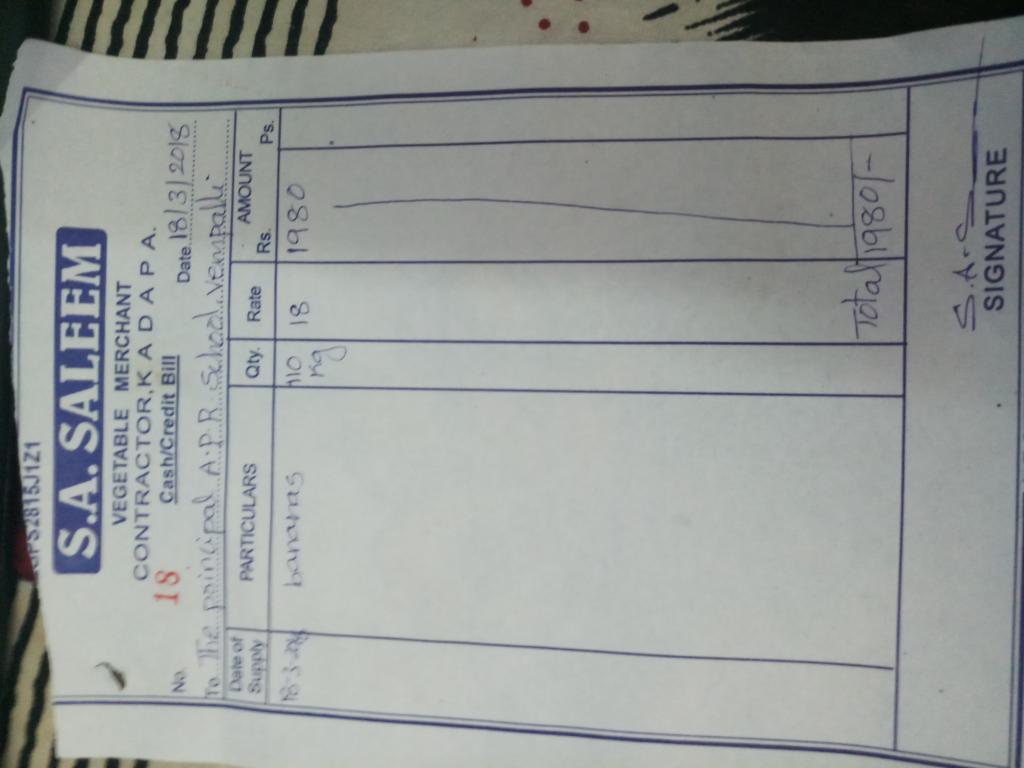 S.A. SALEEM
VEGETABLE MERCHANT
CONTRACTOR, K A D A P A.
Cash/Credit Bill
No. 18 Date 18/3/2018
To The principal A.P.R. School Vempalli
Date of Supply PARTICULARS Qty. Rate AMOUNT
Rs. Ps.
bananas 110 kg 18 1980
Total 1980/-
S.A.S
SIGNATURE